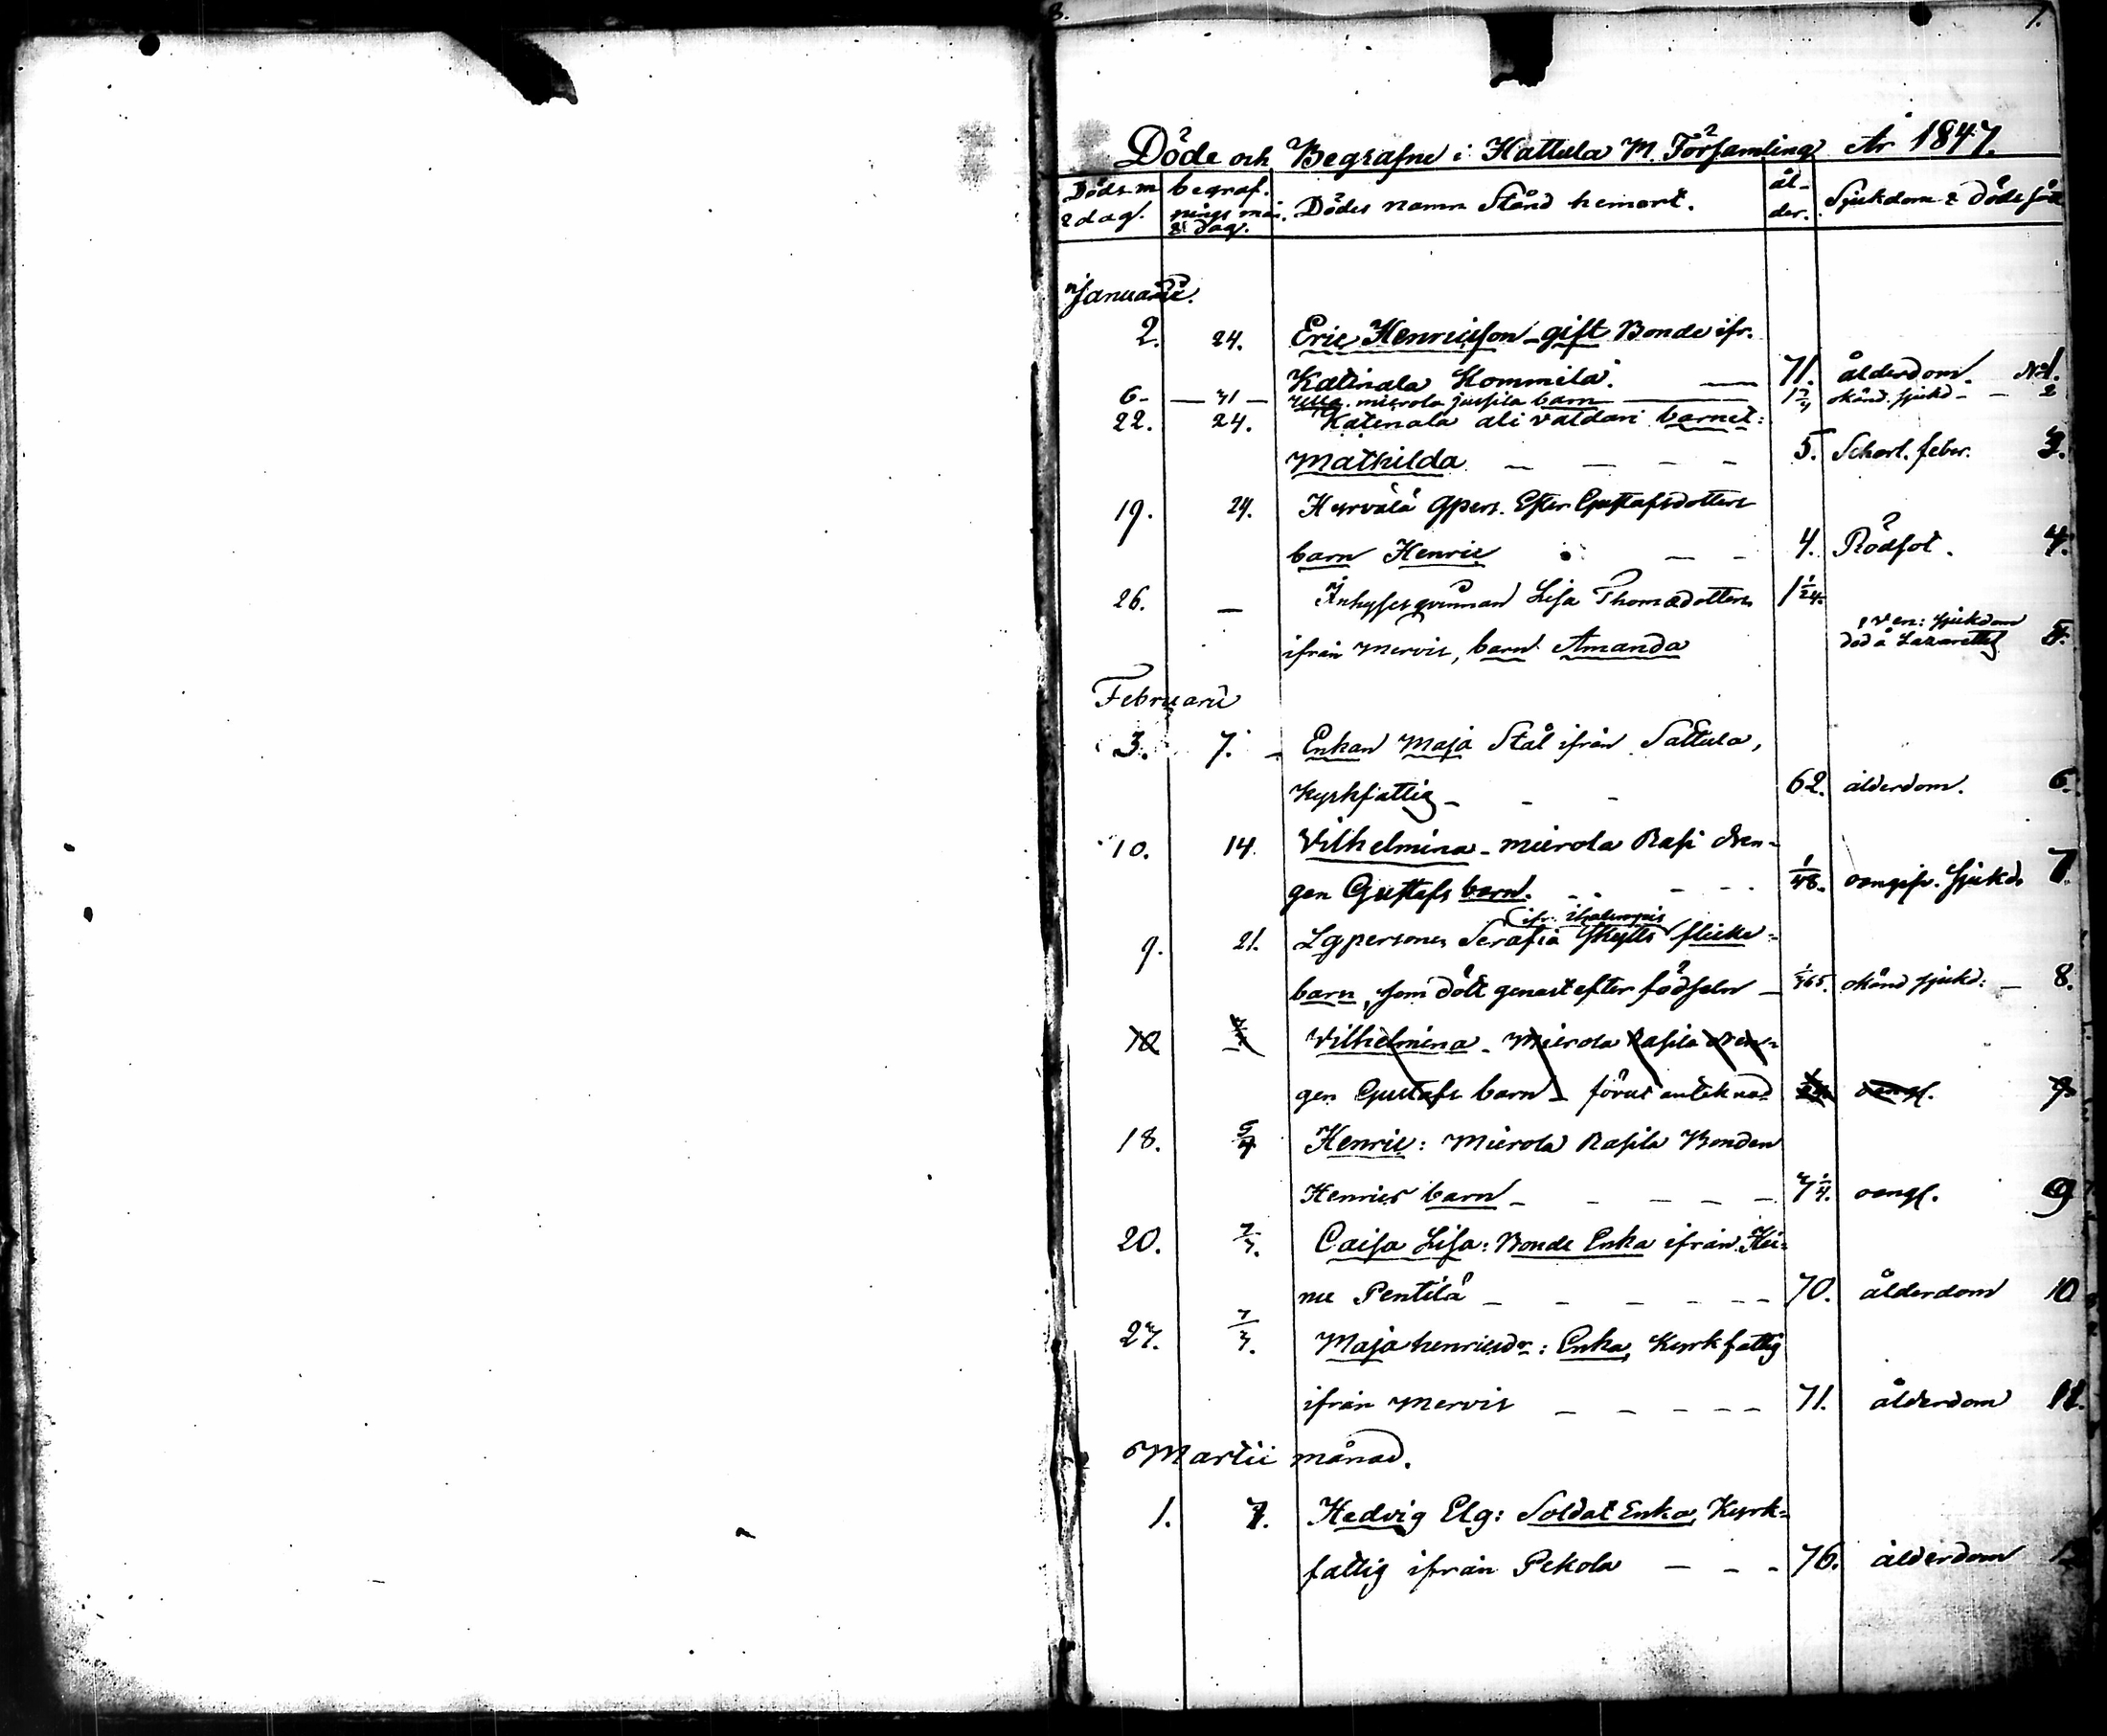 1.
Döde och Begrafne i Hattula M. Församling År 1847.
Döds m & dag. begraf-nings mån. & dag. Dödes namn Stånd hemort. ål-der. Sjukdom & dödssätt
Januarii.
2. 24. Eric Henricsson gift Bonde ifr.
Katinala Kommila. 71. ålderdom. No 1.
6 - 31 - mierola jussila barn okänd. sjukd - 2
22. 24. Katinala ali valdari barnet:
Mathilda 5. Scharl. feber. 3.
19. 24. Hurvala Gpers. Ester Gustafsdotters
barn Henric 4. Rödsot. 4.
26. - Inhysesqvinnan Lisa Thomædotters 1 1/24.
ifrån Mervis, barn Amanda ven: sjukdom död å Lazarettet 5.
Februarii
3. 7. Enkan Maja Stål ifrån Sattula,
Kyrkfattig 62. ålderdom. 6.
10. 14. Vilhelmina - mierola Rasi dren-
gen Gustafs barn. 1/48. oangifv. sjukd. 7.
(ifr. ihalempis
9. 21. Lgpersones Serafia Skytts flicke-
barn, som dött genast efter födseln 1/365. okänd sjukd: 8.
10 Vilhelmina - Mierola Rasila dren-
gen Gustafs barn - förut antecknad oangf. 9
18. 5/4 Henric: Mierola Rasila Bonden
Henrics barn 7 1/4. oangf. 9
20. 7/3. Caisa Lisa: Bonde Enka ifrån Hei-
nu Pentilä 70. ålderdom 10
27. 7/3. Maja henricsdr: Enka, Kyrkfattig
ifrån Mervis 71. ålderdom 11.
Martii månad.
1. 7. Hedvig Elg: Soldat Enka, Kyrk-
fattig ifrån Pekola 76. ålderdom